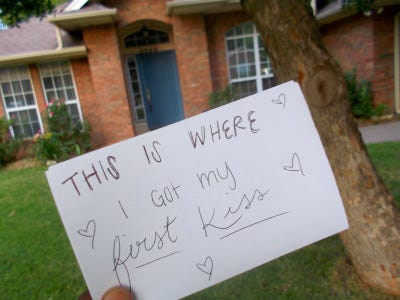 THIS IS WHERE
I GOT my
first kiss